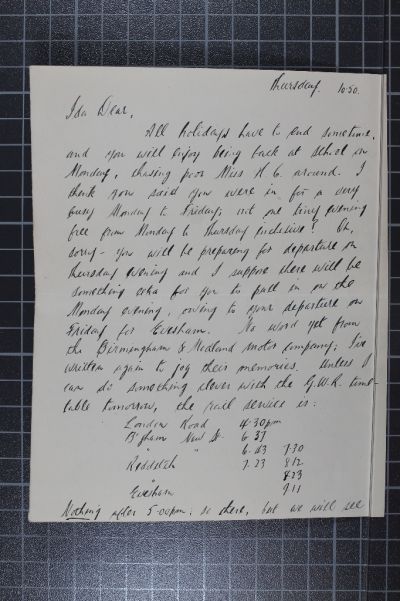 Thursday. 10.50.
Ida Dear,
All holidays have to end sometime,
and you will enjoy being back at school on
Monday, chasing poor Miss H.C. around. I
think you said you were in for a very
busy Monday to Friday; not one tiny evening
free from Monday to Thursday inclusive! Oh,
sorry - you will be preparing for departure on
Thursday evening and I suppose there will be
something extra for you to pull in on the
Monday evening, owing to your departure on
Friday for Evesham. No word yet from
the Birmingham & Midland Motor Company; I've
written again to jog their memories. Unless I
can do something clever with the G.W.R. time-
table tomorrow, the rail service is:
London Road 4.30pm
B'gham New St. 6.37
" " 6.43 7.30
Redditch 7.23 8.12
" 8.23
Evesham 9.11
Nothing after 5.00pm; so there, but we will see